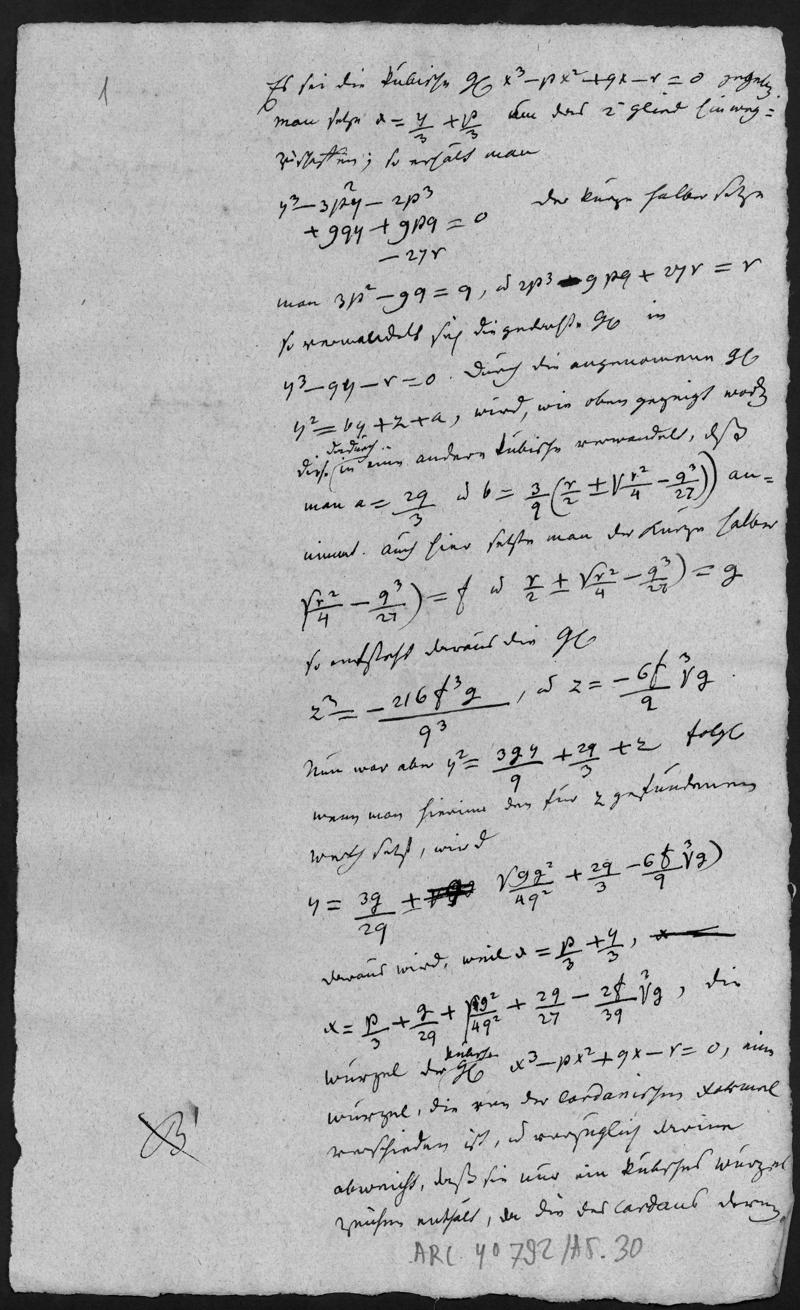 1
Es sei die kubische Gl x³ − px² + qx − r = 0 gegeben,
man setze x = y/3 + p/3 um das 2te Glied hinweg=
zuschaffen; so erhält man
y³ − 3p²y − 2p³
+ 9qy + 9pq = 0 der Kürze halber setze
− 27r
man 3p² − 9q = q, u 2p³ − 9pq + 27r = r
so verwandelt sich die gedachte Gl in
y³ − qy − r = 0. Durch die angenommene Gl
y² = by + z + a, wird, wie oben gezeigt worden
diese dadurch in eine andere kubische verwandelt, daß
man a = 2q/3 u b = 3/q (r/2 ± √r²/4 − q³/27)) an=
nimmt. Auch hier setzte man der Kürze halber
√r²/4 − q³/27) = f u r/2 ± √r²/4 − q³/27) = g
so entsteht daraus die Gl
z³ = −216f³g/q³, u z = −6f/q ³√g.
Nun war aber y² = 3gy/q + 2q/3 + z folgl
wenn man hierinne den für z gefundenen
Werth setzt, wird
y = 3g/2q ± √9g²/4q² + 2q/3 − 6f/q ³√g)
daraus wird, weil x = p/3 + y/3,
x = p/3 + g/2q + √g²/4q² + 2q/27 − 2f/3q ³√g, die
Wurzel der kubischen Gl x³ − px² + qx − r = 0, eine
Wurzel, die von der Cardanischen Formel
verschieden ist, u vorzüglich darinne
abweicht, daß sie nur ein kubisches Wurzel
zeichen enthält, da die des Cardans deren
B
ARC 40 792/A5. 30